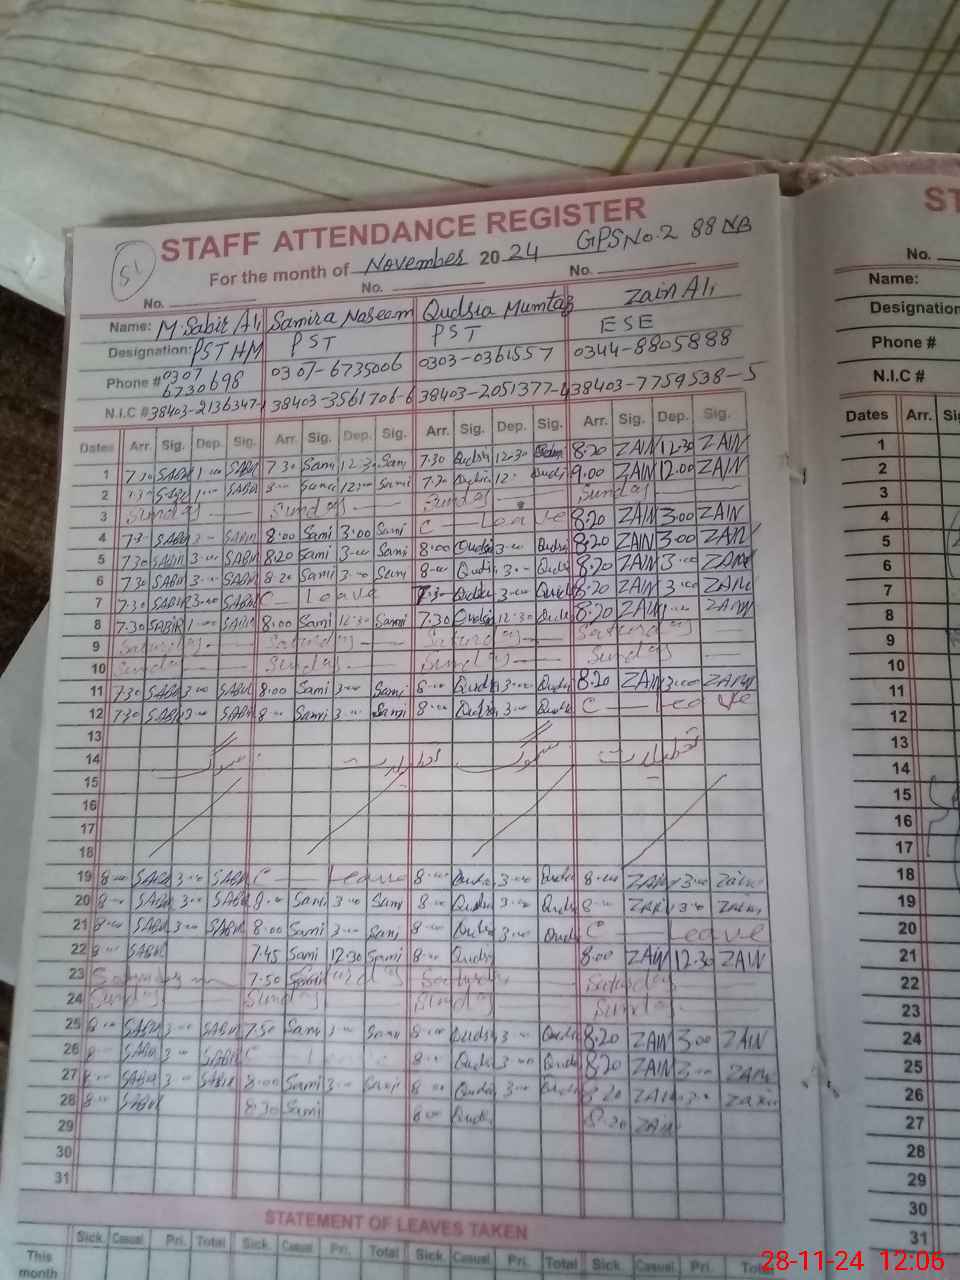 STAFF ATTENDANCE REGISTER
51
For the month of November 20 24 GPS No.2 88 NB
No. No. No.
Name: M. Sabir Ali Samina Naseem Qudsia Mumtaz Zain Ali
Designation: PST HM PST PST ESE
Phone # 0307 6730698 0307-6735006 0303-0361557 0344-8805888
N.I.C # 38403-2136347-1 38403-3561706-6 38403-2051377-4 38403-7759538-5
Dates Arr. Sig. Dep. Sig. Arr. Sig. Dep. Sig. Arr. Sig. Dep. Sig. Arr. Sig. Dep. Sig.
1 7.30 SABIR 1.00 SABIR 7.30 Sami 12.30 Sami 7.30 Qudsia 12.30 8.20 ZAIN 12.30 ZAIN
2 7.30 SABIR 1.00 SABIR 8.00 Sami 12.00 Sami 7.30 Qudsia 12. Qudsi 9.00 ZAIN 12.00 ZAIN
3 Sunday Sunday Sunday Sunday
4 SABIR 3.00 SABIR 8:00 Sami 3.00 Sami C Leave 8.20 ZAIN 3.00 ZAIN
5 7.30 SABIR 3.00 SABIR 8.20 Sami 3.00 Sami 8.00 Qudsi 3.00 Qudsi 8.20 ZAIN 3.00 ZAIN
6 7.30 SABIR 3.00 SABIR 8.20 Sami 3.00 Sami 8.00 Qudsi 3.00 Qudsi 8.20 ZAIN 3.00 ZAIN
7 7.30 SABIR 3.00 SABIR C Leave 7.30 Qudsi 3.00 Qudsi 8.20 ZAIN 3.00 ZAIN
8 7.30 SABIR 1.00 SABIR 8.00 Sami 12.30 Sami 7.30 Qudsi 12.30 Qudsi 8.20 ZAIN ZAIN
9 Saturday Saturday Saturday Saturday
10 Sunday Sunday Sunday Sunday
11 7.30 SABIR 3.00 SABIR 8.00 Sami 3.00 Sami 8.00 Qudsi 3.00 Qudsi 8.20 ZAIN 3.00 ZAIN
12 7.30 SABIR 3.00 SABIR 8.00 Sami 3.00 Sami 8.00 Qudsi 3.00 Qudsi C Leave
13
14 سموگ تعطیلات سموگ تعطیلات
15
16
17
18
19 8.00 SABIR 3.00 SABIR C Leave 8.00 Qudsi 3.00 Qudsi 8.00 ZAIN 3.00 Zain
20 8.00 SABIR 3.00 SABIR 8.00 Sami 3.00 Sami 8.00 Qudsi 3.00 Qudsi 8.00 ZAIN 3.00 ZAIN
21 8.00 SABIR 3.00 SABIR 8.00 Sami 3.00 Sami 8.00 Qudsi 3.00 Qudsi C Leave
22 8.00 SABIR 7.45 Sami 12.30 Sami 8.00 Qudsi 8.00 ZAIN 12.30 ZAIN
23 7.50 Saturday Saturday
24 Sunday Sunday Sunday Sunday
25 8.00 SABIR 3.00 SABIR 7.50 Sami 3.00 Sami 8.00 Qudsi 3.00 Qudsi 8.20 ZAIN 3.00 ZAIN
26 8.00 SABIR 3.00 SABIR C Leave 8.00 Qudsi 3.00 Qudsi 8.20 ZAIN 3.00 ZAIN
27 8.00 SABIR 3.00 SABIR 8.00 Sami 3.00 Sami 8.00 Qudsi 3.00 Qudsi 8.20 ZAIN 3.00 Zain
28 8.00 SABIR 8.30 Sami 8.00 Qudsi 8.20 ZAIN
29
30
31
STATEMENT OF LEAVES TAKEN
Sick. Casual Pri. Total Sick. Casual Pri. Total Sick. Casual Pri. Total Sick. Casual Pri. Total
This month
ST
No.
Name:
Designation
Phone #
N.I.C #
Dates Arr.
1
2
3
4
5
6
7
8
9
10
11
12
13
14
15
16
17
18
19
20
21
22
23
24
25
26
27
28
29
30
31
28-11-24 12:06